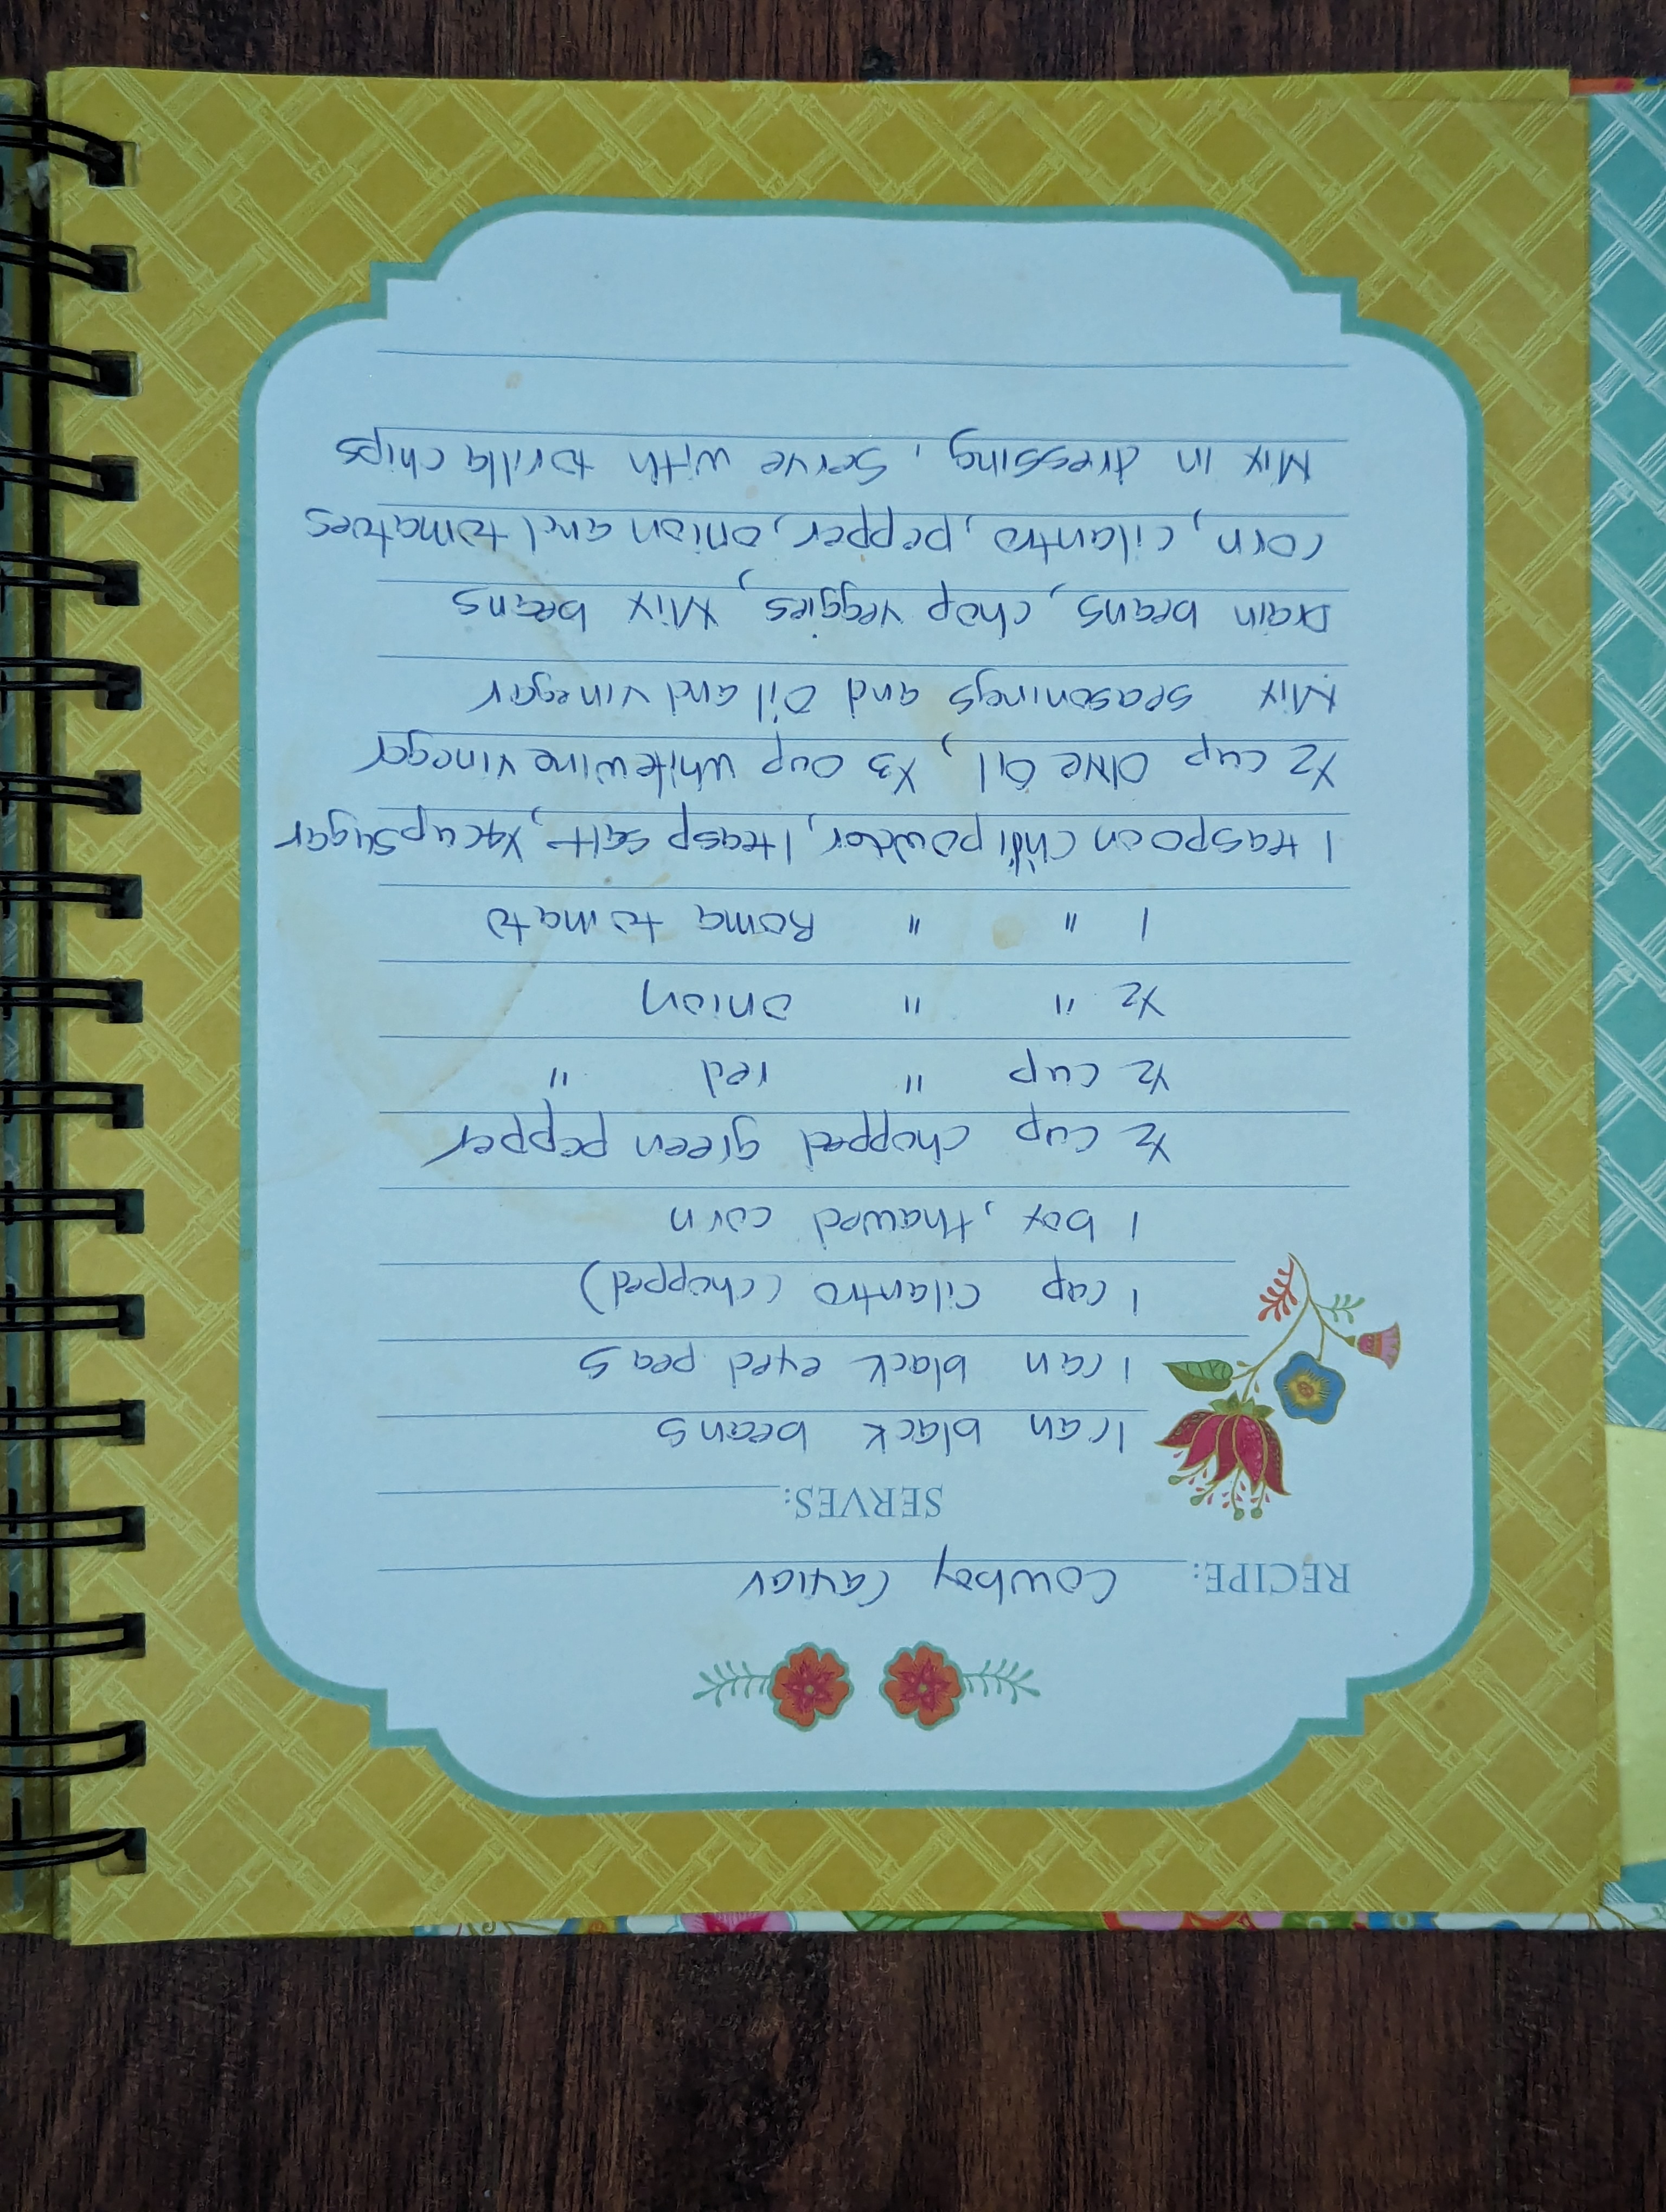 RECIPE: Cowboy Caviar
SERVES:
1 can black beans
1 can black eyed peas
1 cup cilantro (chopped)
1 box, thawed corn
1/2 cup chopped green pepper
1/2 cup " red "
1/2 " " onion
1 " " Roma tomato
1 teaspoon chili powder, 1 teasp salt, 1/4 cup sugar
1/2 cup olive oil, 1/3 cup white wine vinegar
Mix seasonings and oil and vinegar
Drain beans, chop veggies, Mix beans
corn, cilantro, pepper, onion and tomatoes
Mix in dressing, serve with tortilla chips